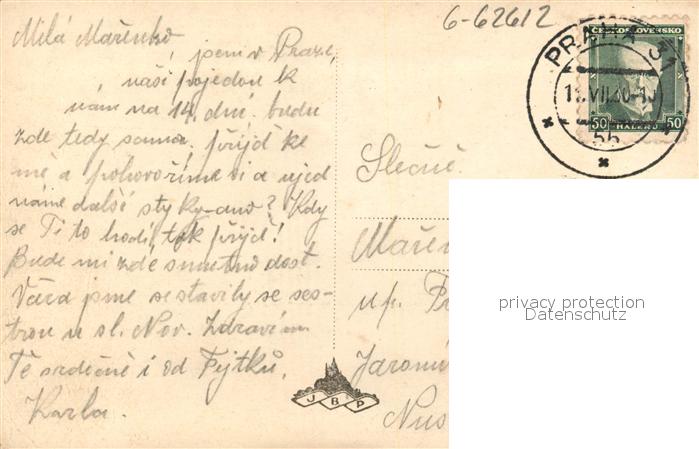 6-62612
Milá Mařenko
jsem v Praze,
naši pojedou k
nám na 14 dní. budu
zde tedy sama. přijď ke
mě a pohovoříme si a ujed
náme další styky-ano? Kdy
se Ti to hodí, tak přijď!
Bude mi zde smutno dost.
Včera jsme se stavily se ses-
trou u sl. Nov. Zdravím
Tě srdečně i od Fejtků,
Karla.
PRAHA 31
VII.30
ČESKOSLOVENSKO
50 HALÉŘŮ 50
Slečně
Mařen
u p.
Jaromí
Nus
JBP
privacy protection
Datenschutz